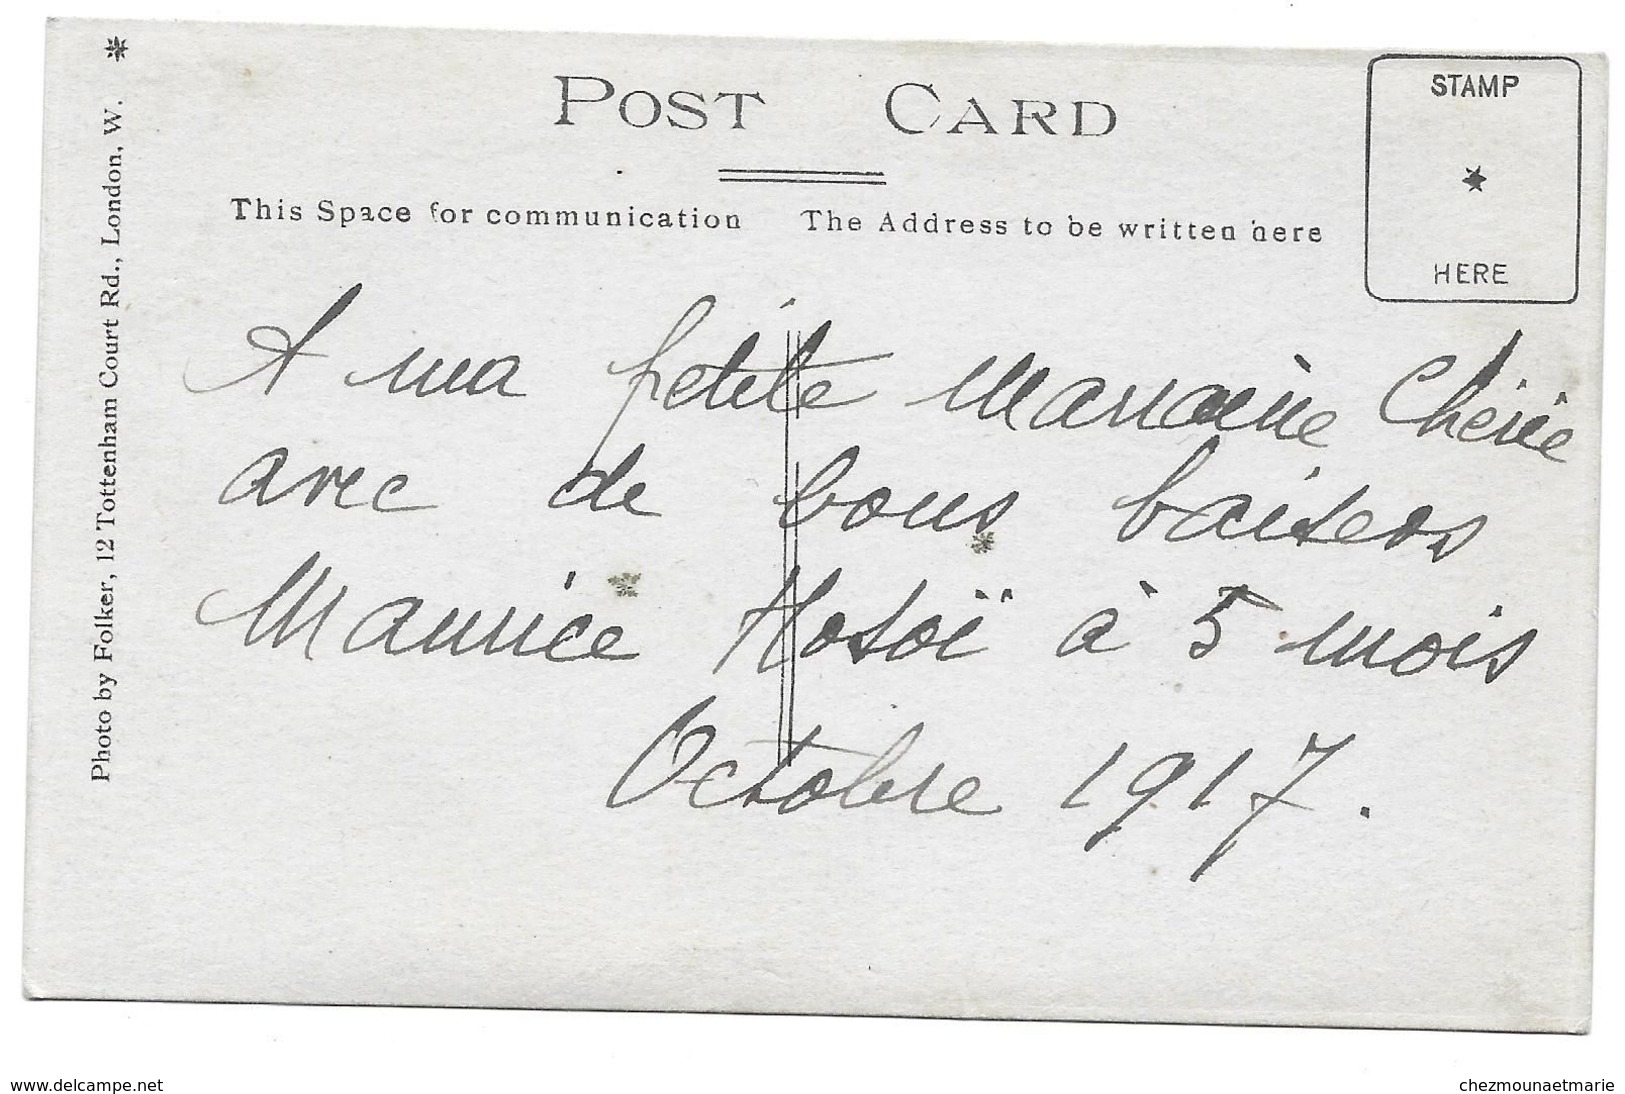 POST CARD
STAMP
HERE
This Space for communication The Address to be written here
Photo by Folker, 12 Tottenham Court Rd., London, W.
A ma petite Marraine Chérie
avec de bons baisers
Maurice à 5 mois
Octobre 1917.
www.delcampe.net
chezmounaetmarie